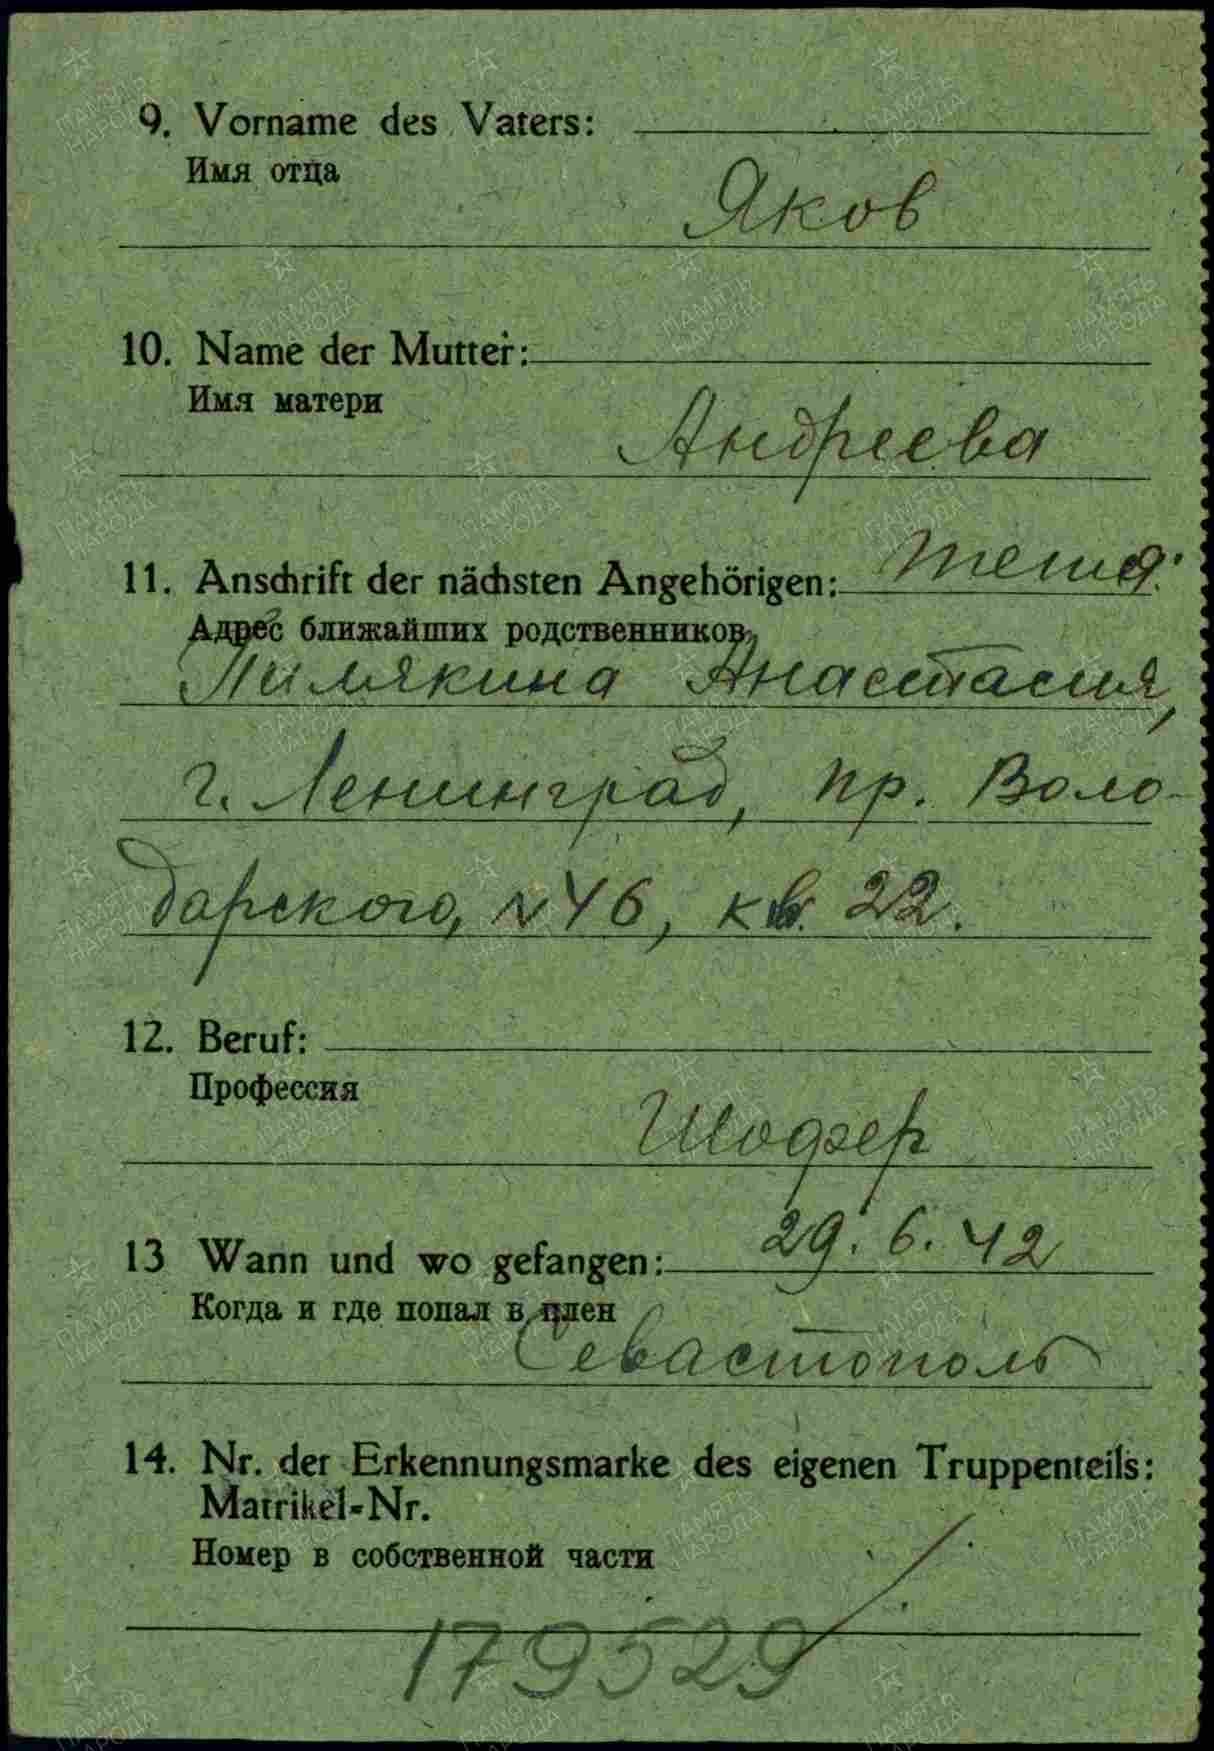 9. Vorname des Vaters:
Имя отца
Яков
10. Name der Mutter:
Имя матери
Андреева
11. Anschrift der nächsten Angehörigen:
Адрес ближайших родственников
Анастасия,
г. Ленинград, пр. Воло-
дарского, № 46, кв. 22.
12. Beruf:
Профессия
Шофер
13 Wann und wo gefangen: 29.6.42
Когда и где попал в плен
Севастополь
14. Nr. der Erkennungsmarke des eigenen Truppenteils:
Matrikel-Nr.
Номер в собственной части
179529